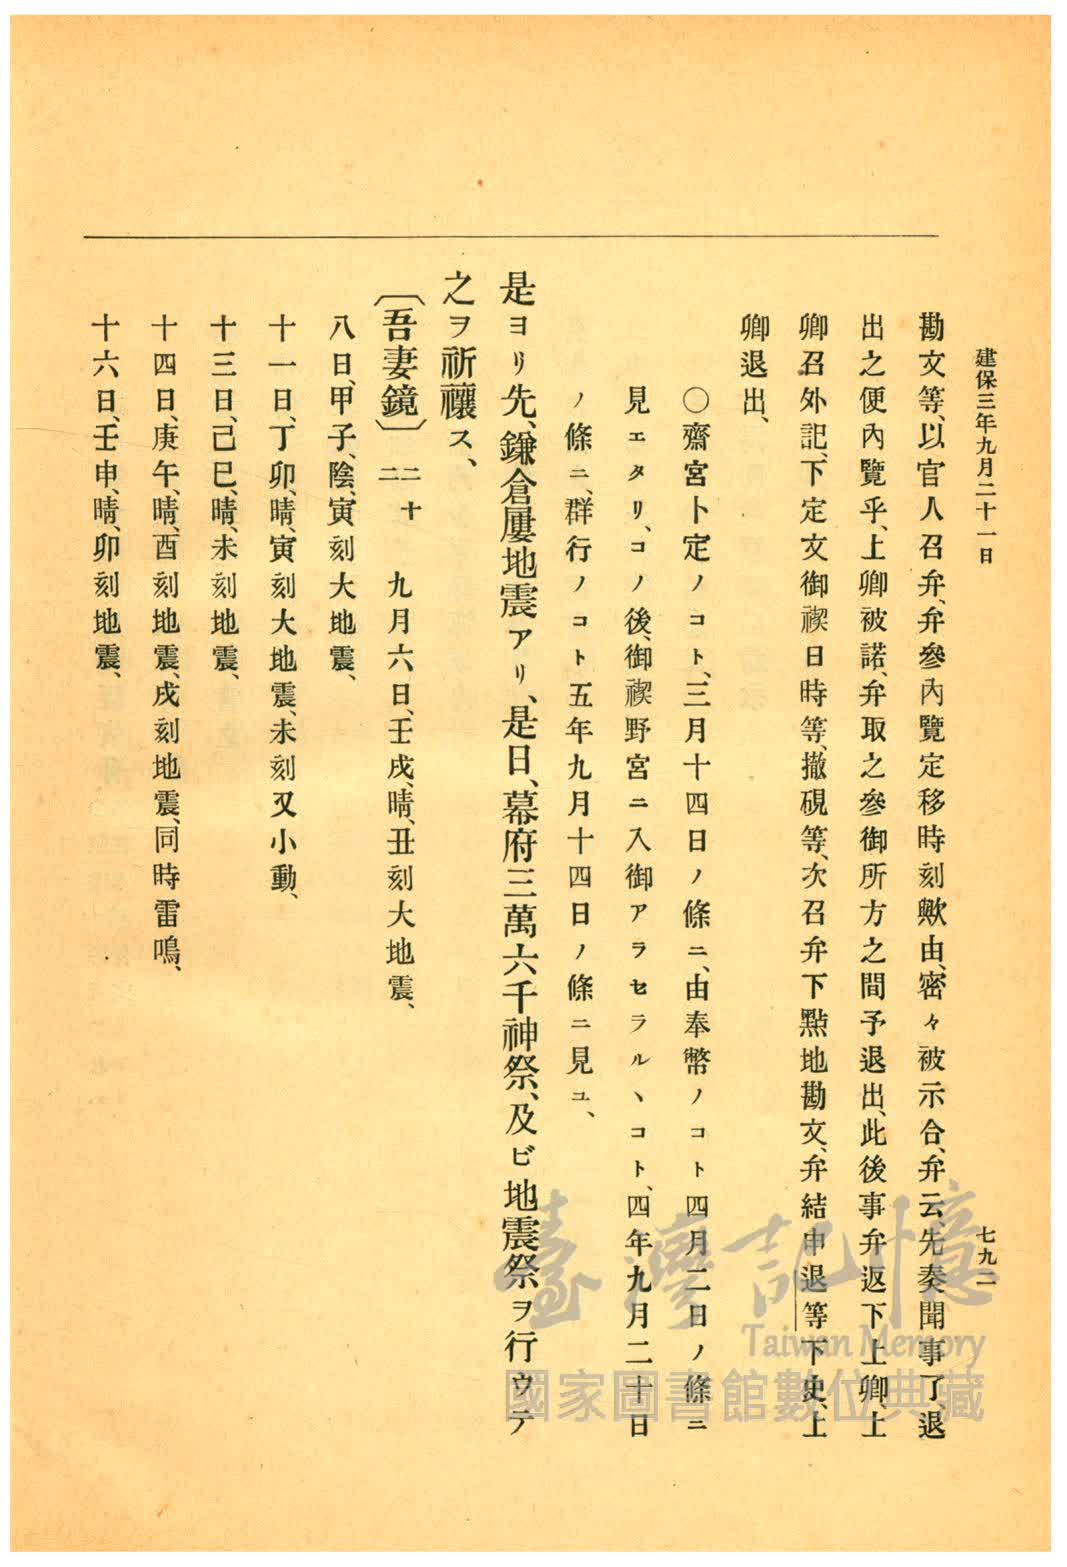 建保三年九月二十一日
七九二
勘文等、以官人召弁、弁參內覽定移時刻歟由、密々被示合、弁云、先奏聞事了、退
出之便內覽乎、上卿被諾、弁取之參御所方之間予退出、此後事弁返下上卿、上
卿召外記、下定文御禊日時等、撤硯等、次召弁下點地勘文、弁結申退等下史、上
卿退出、
〇齋宮卜定ノコト、三月十四日ノ條ニ、由奉幣ノコト四月二日ノ條ニ
見エタリ、コノ後、御禊野宮ニ入御アラセラルヽコト、四年九月二十日
ノ條ニ、群行ノコト五年九月十四日ノ條ニ見ユ、
是ヨリ先、鎌倉屢地震アリ、是日、幕府三萬六千神祭、及ビ地震祭ヲ行ウテ
之ヲ祈禳ス、
〔吾妻鏡〕二十二 九月六日、壬戌、晴、丑刻大地震、
八日、甲子、陰、寅刻大地震、
十一日、丁卯、晴、寅刻大地震、未刻又小動、
十三日、己巳、晴、未刻地震、
十四日、庚午、晴、酉刻地震、戌刻地震、同時雷鳴、
十六日、壬申、晴、卯刻地震、
臺灣記憶
Taiwan Memory
國家圖書館數位典藏